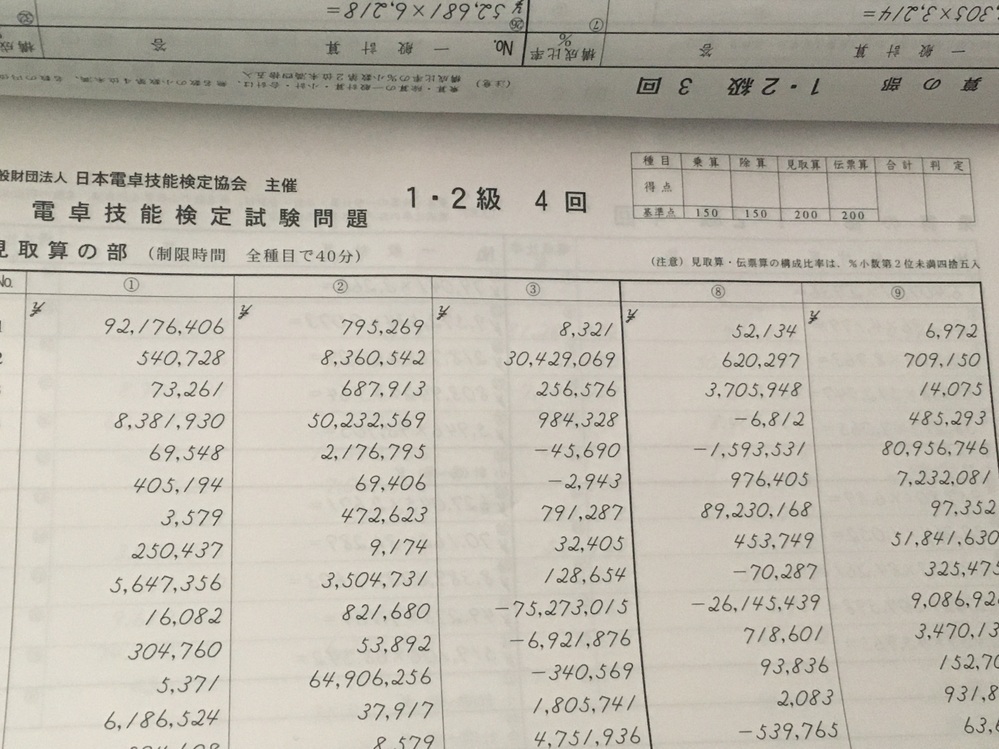 ,305×3,214=
⑦
¥ 52,681×6,218=
㉖
一 般 計 算 答
構成比率 %
No. 一 般 計 算 答
構成
算 の 部 1・2級 3 回
(注意)
般財団法人 日本電卓技能検定協会 主催
電卓技能検定試験問題
1・2級 4 回
種目 乗算 除算 見取算 伝票算 合計 判定
得点
基準点 150 150 200 200
見取算の部 (制限時間 全種目で40分)
(注意) 見取算・伝票算の構成比率は、%小数第2位未満四捨五入
No. ① ② ③ ⑧ ⑨
1 ¥ 92,176,406 ¥ 795,269 ¥ 8,321 ¥ 52,134 ¥ 6,972
2 540,728 8,360,542 30,429,069 620,297 709,150
73,261 687,913 256,576 3,705,948 14,075
8,381,930 50,232,569 984,328 -6,812 485,293
69,548 2,176,795 -45,690 -1,593,531 80,956,746
405,194 69,406 -2,943 976,405 7,232,081
3,579 472,623 791,287 89,230,168 97,352
250,437 9,174 32,405 453,749 51,841,630
5,647,356 3,504,731 128,654 -70,287 325,475
16,082 821,680 -75,273,015 -26,145,439 9,086,92
304,760 53,892 -6,921,876 718,601 3,470,13
5,371 64,906,256 -340,569 93,836 152,70
6,186,524 37,917 1,805,741 2,083 931,8
8,579 4,751,936 -539,765 63,